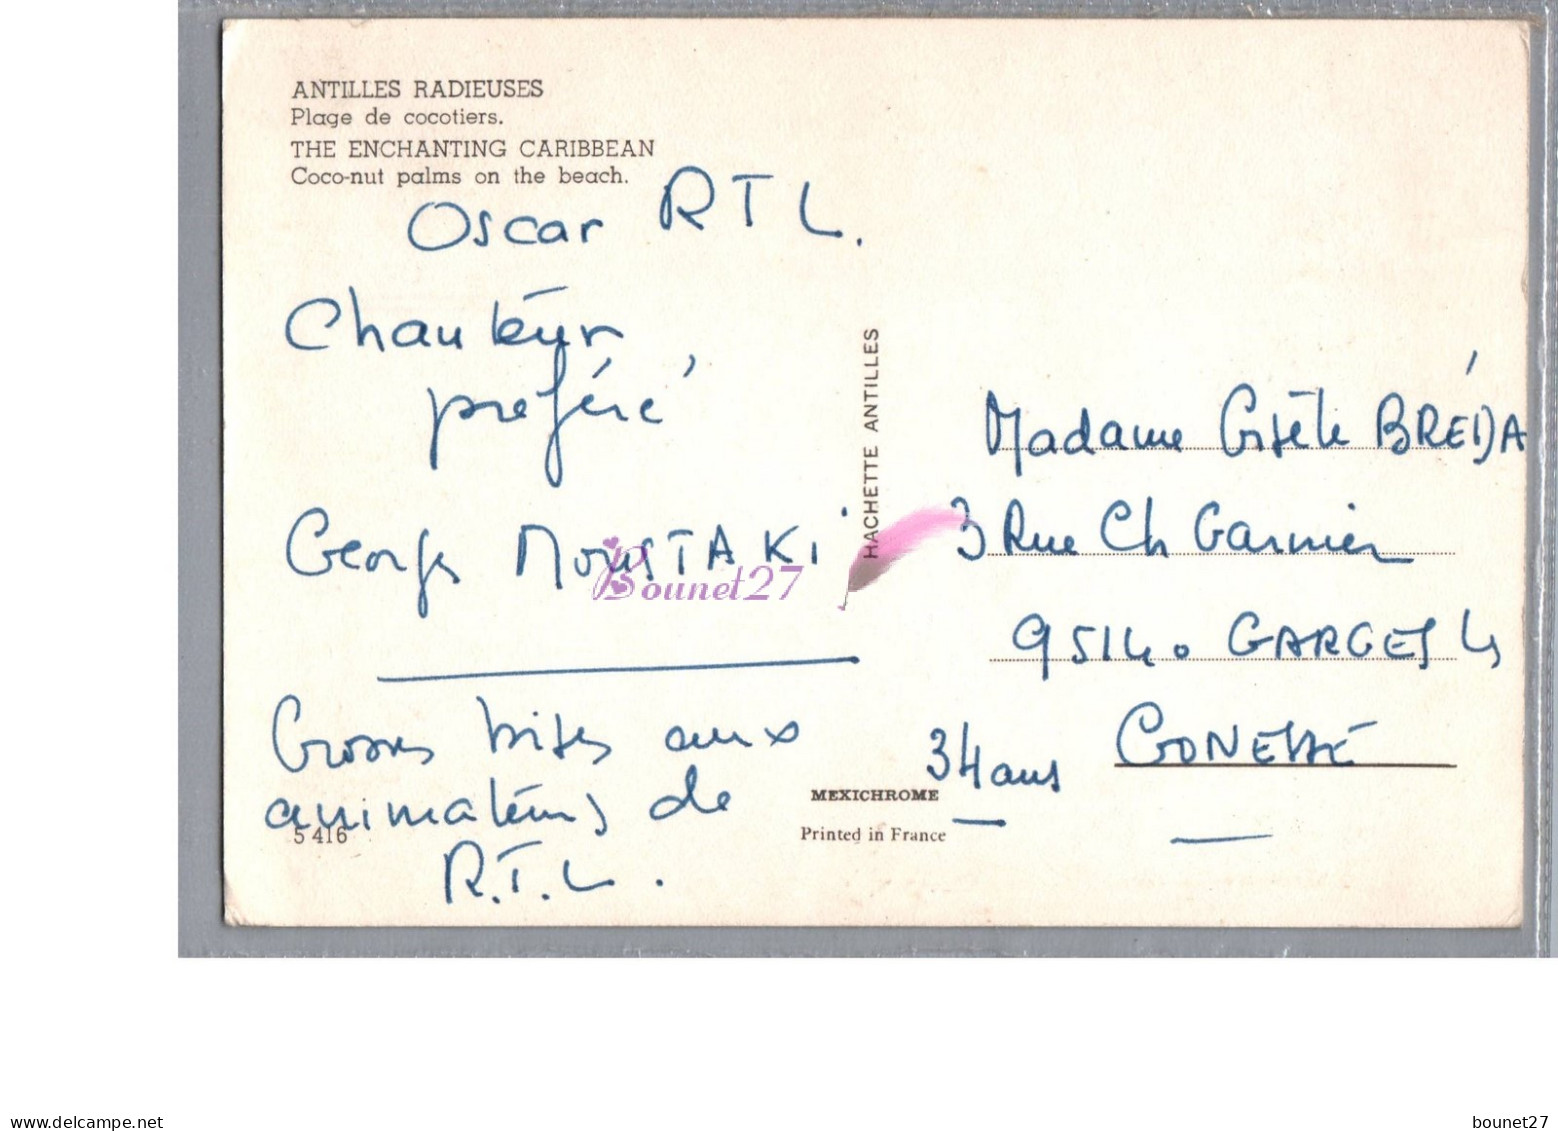 ANTILLES RADIEUSES
Plage de cocotiers.
THE ENCHANTING CARIBBEAN
Coco-nut palms on the beach.
Oscar RTL.
Chanteur
préféré
Georges MOUSTAKI
Grosses bises aux
animateurs de
R.T.L.
5 416
HACHETTE ANTILLES
Bounet27
MEXICHROME
Printed in France
Madame Gisèle BREDA
3 Rue Ch Garnier
95140 GARGES LS
GONESSE
34 ans
www.delcampe.net
bounet27